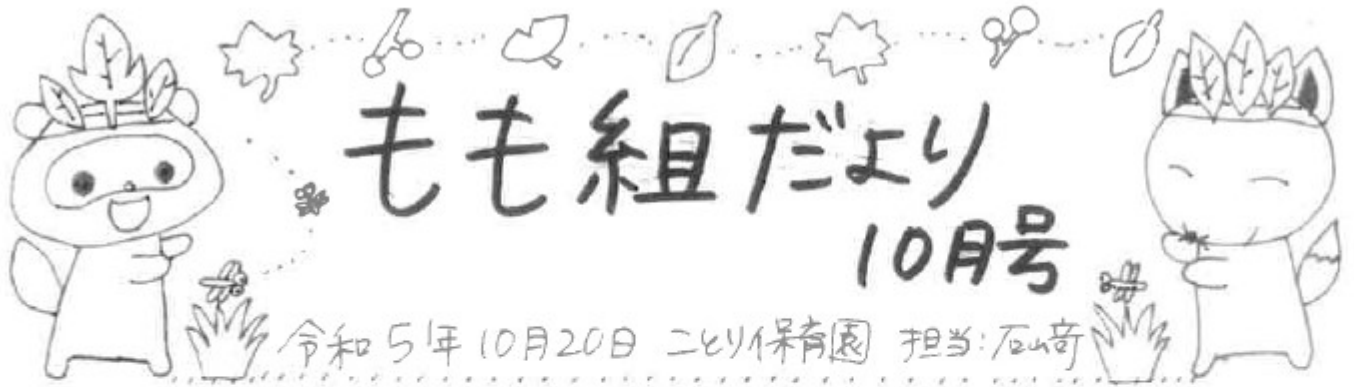 もも組だより
10月号
令和5年10月20日 ことり保育園 担当:石﨑